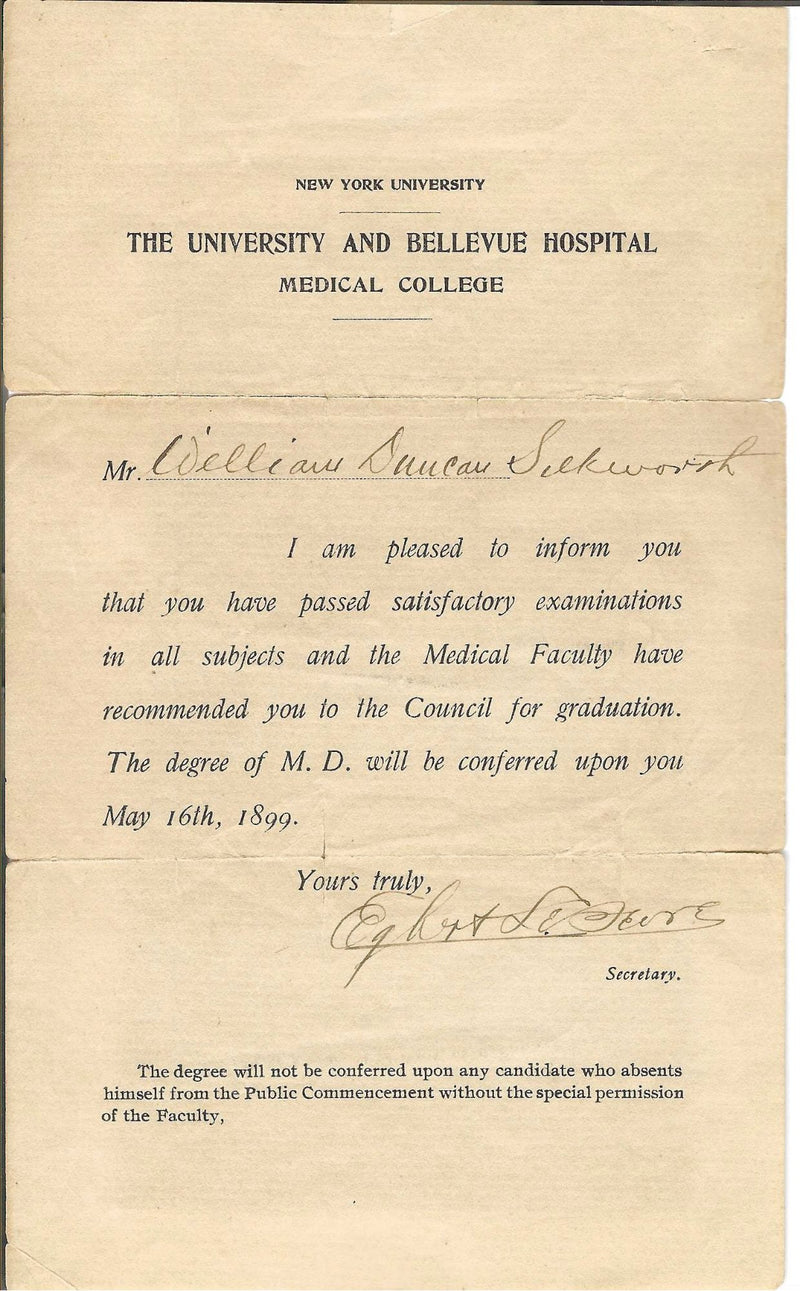 NEW YORK UNIVERSITY
THE UNIVERSITY AND BELLEVUE HOSPITAL
MEDICAL COLLEGE
Mr. William Duncan Silkworth
I am pleased to inform you
that you have passed satisfactory examinations
in all subjects and the Medical Faculty have
recommended you to the Council for graduation.
The degree of M. D. will be conferred upon you
May 16th, 1899.
Yours truly,
Egbert Le Fevre
Secretary.
The degree will not be conferred upon any candidate who absents
himself from the Public Commencement without the special permission
of the Faculty,